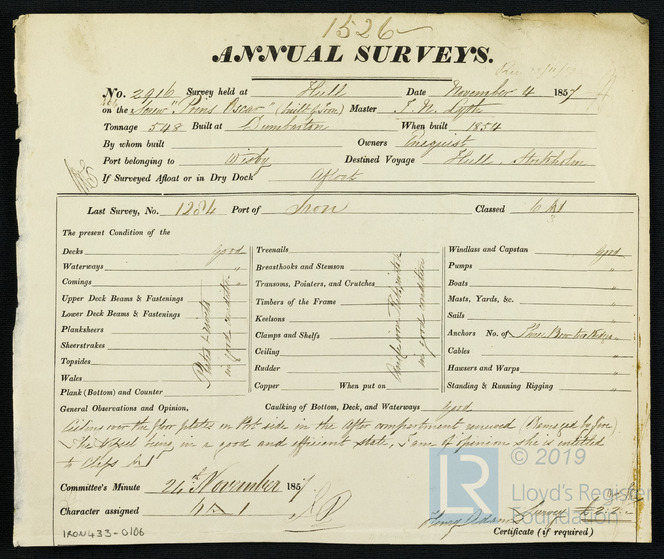 1526
ANNUAL SURVEYS.
No. 2916 Survey held at Hull Date November 4 1857
on the Screw "Prins Oscar" (built of Iron) Master J. N. Lyth
Tonnage 548 Built at Dumbarton When built 1854
By whom built Owners Enequist
Port belonging to Wisby Destined Voyage Hull, Stockholm
If Surveyed Afloat or in Dry Dock Afloat
Last Survey, No. 1284 Port of Iron Classed 6 A1
The present Condition of the
Decks good
Waterways "
Comings "
Upper Deck Beams & Fastenings
Lower Deck Beams & Fastenings
Planksheers
Sheerstrakes
Topsides
Wales
Plank (Bottom) and Counter
Plates & rivets
in good condition
Treenails
Breasthooks and Stemson
Transoms, Pointers, and Crutches
Timbers of the Frame
Keelsons
Clamps and Shelfs
Ceiling
Rudder
Copper When put on
in good condition
Windlass and Capstan good
Pumps "
Boats "
Masts, Yards, &c. "
Sails "
Anchors No. of Three Bow "
Cables "
Hawsers and Warps "
Standing & Running Rigging "
General Observations and Opinion, Caulking of Bottom, Deck, and Waterways good
Ceiling over the floor plates on Port side in the After compartment renewed (Damaged by fire)
The Vessel being in a good and efficient state, I am of opinion she is entitled
to Class A1
Committee's Minute 24th November 1857
Character assigned 6 A 1
Henry Adams Survey £2.2.-
Certificate (if required)
IRON433-0106
LR
© 2019
Lloyd's Register
Foundation